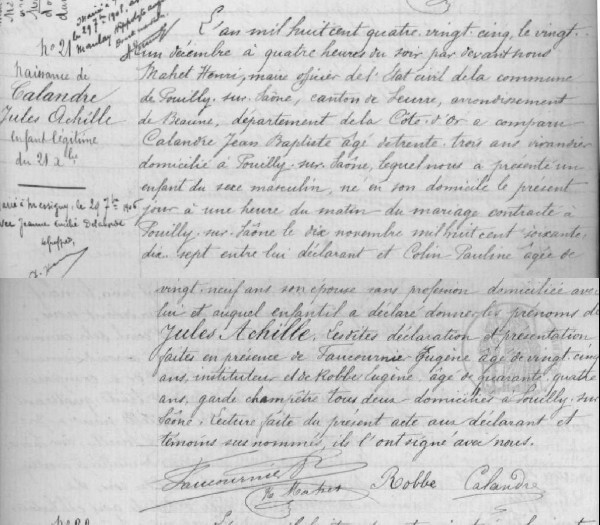 Marié à
le 29 7bre 1908
No 21
Naissance de
Calandre
Jules Achille
enfant légitime
du 21 Xbre
marié à Pressigny, le 29 7bre 1906
avec Jeanne Emilie
L'an mil huit cent quatre-vingt-cinq, le vingt-
un décembre à quatre heures du soir par devant nous
Mahet Henri, maire officier de l'Etat civil de la commune
de Pouilly-sur-Saône, canton de Seurre, arrondissement
de Beaune, département de la Côte-d'Or a comparu
Calandre Jean Baptiste âgé de trente-trois ans vivandier
domicilié à Pouilly-sur-Saône, lequel nous a présenté un
enfant du sexe masculin, né en son domicile le présent
jour à une heure du matin du mariage contracté à
Pouilly-sur-Saône le dix novembre mil huit cent soixante-
dix-sept entre lui déclarant et Colin Pauline âgée de
vingt-neuf ans son épouse sans profession domiciliée avec
lui et auquel enfant il a déclaré donner les prénoms de
Jules Achille. Lesdites déclaration et présentation
faites en présence de Faucournie Eugène âgé de vingt-cinq
ans, instituteur et de Robbe Eugène âgé de quarante-quatre
ans, garde champêtre tous deux domiciliés à Pouilly-sur-
Saône. Lecture faite du présent acte aux déclarant et
témoins sus nommés, il l'ont signé avec nous.
Faucournie
Robbe
Calandre